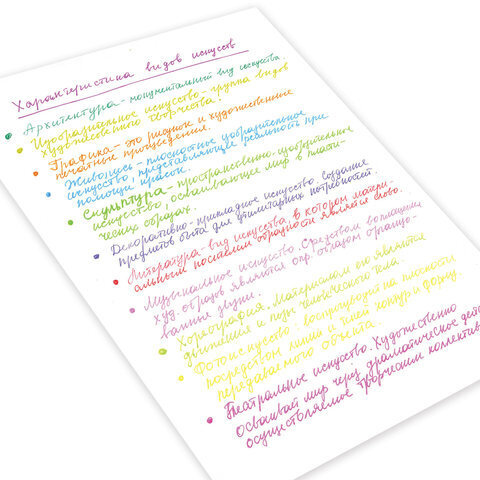 Характеристика видов искусств
Архитектура - монументальный вид искусства.
Изобразительное искусство - группа видов
художественного творчества:
Графика - это рисунок и художественные
печатные произведения.
Живопись - плоскостное изобразительное
искусство, представляющее реальность при
помощи красок.
Скульптура - пространственно-изобразительное
искусство, осваивающее мир в пласти-
ческих образах.
Декоративно-прикладное искусство. Создание
предметов быта для утилитарных потребностей.
Литература - вид искусства, в котором матери-
альным носителем образности является слово.
Музыкальное искусство. Средством воплощения
худ. образов являются опр. образом организо-
ванные звуки.
Хореография. Материалом являются
движения и позы человеческого тела.
Фотоискусство: воспроизводит на плоскости
посредством линий и теней контур и форму
передаваемого объекта.
Театральное искусство. Художественно
осваивает мир через драматическое дейст
осуществляемое творческим коллектив